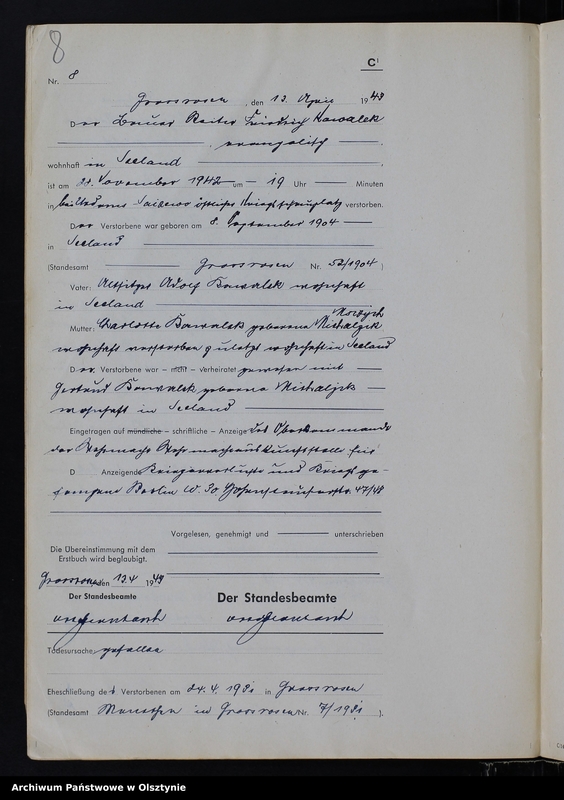 8
C¹
Nr. 8
Grossrosen, den 13. April 1943
Der Bauer Reiter Friedrich Kowalek
evangelisch
wohnhaft in Seeland
ist am 21. November 1942 um 19 Uhr Minuten
in östlicher Kriegsschauplatz verstorben.
Der Verstorbene war geboren am 8. September 1904
in Seeland
(Standesamt Grossrosen Nr. 52/1904)
Vater: Altsitzer Adolf Kowalek wohnhaft
in Seeland
Mutter: Charlotte Kowalek geborene
verstorben zuletzt wohnhaft in Seeland
Der Verstorbene war – nicht – verheiratet gewesen mit
Gertrud Kowalek geborene
wohnhaft in Seeland
Eingetragen auf mündliche – schriftliche – Anzeige des Oberkommando
der Wehrmacht Wehrmachtauskunftstelle für
D Anzeigende Kriegerverluste und Kriegsge-
fangene Berlin W. 30 Hohenstaufenstr. 47/48
Vorgelesen, genehmigt und unterschrieben
Die Übereinstimmung mit dem
Erstbuch wird beglaubigt.
Grossrosen den 13.4 1943
Der Standesbeamte
Der Standesbeamte
Todesursache: gefallen
Eheschließung des Verstorbenen am 24. 4. 1931 in Grossrosen
(Standesamt in Grossrosen Nr. 7/1931).
Archiwum Państwowe w Olsztynie